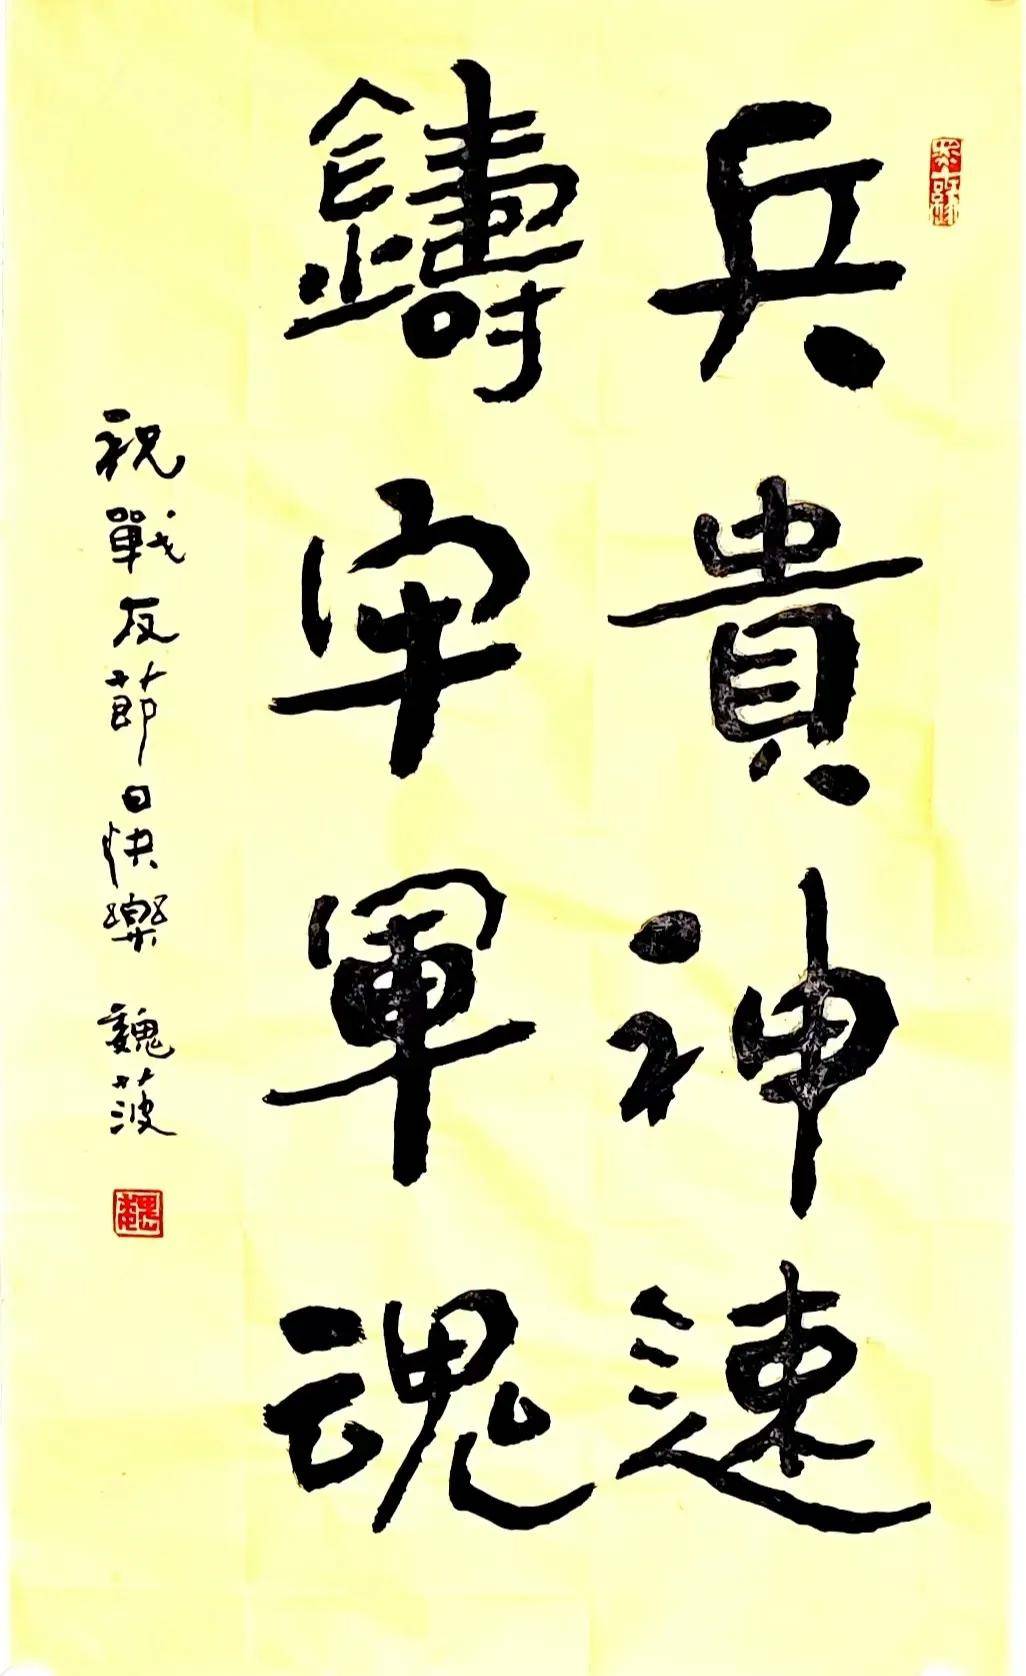 兵貴神速
鑄牢軍魂
祝戰友節日快樂 魏菠